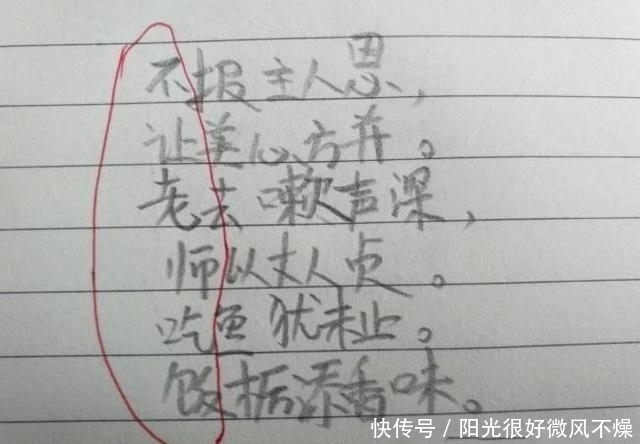 不报主人恩，
让美心方并。
老去嗽声深，
师以丈人贞。
吃鱼犹未止。
饭栝添香味。
快传号/阳光很好微风不燥